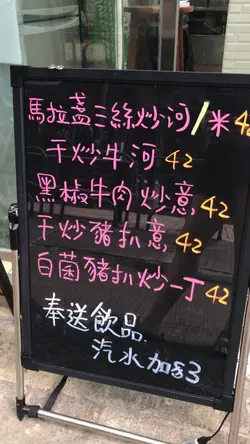 馬拉盞三絲炒河/米 42
干炒牛河 42
黑椒牛肉炒意 42
干炒豬扒意 42
白菌豬扒炒一丁 42
奉送飲品
汽水加$3